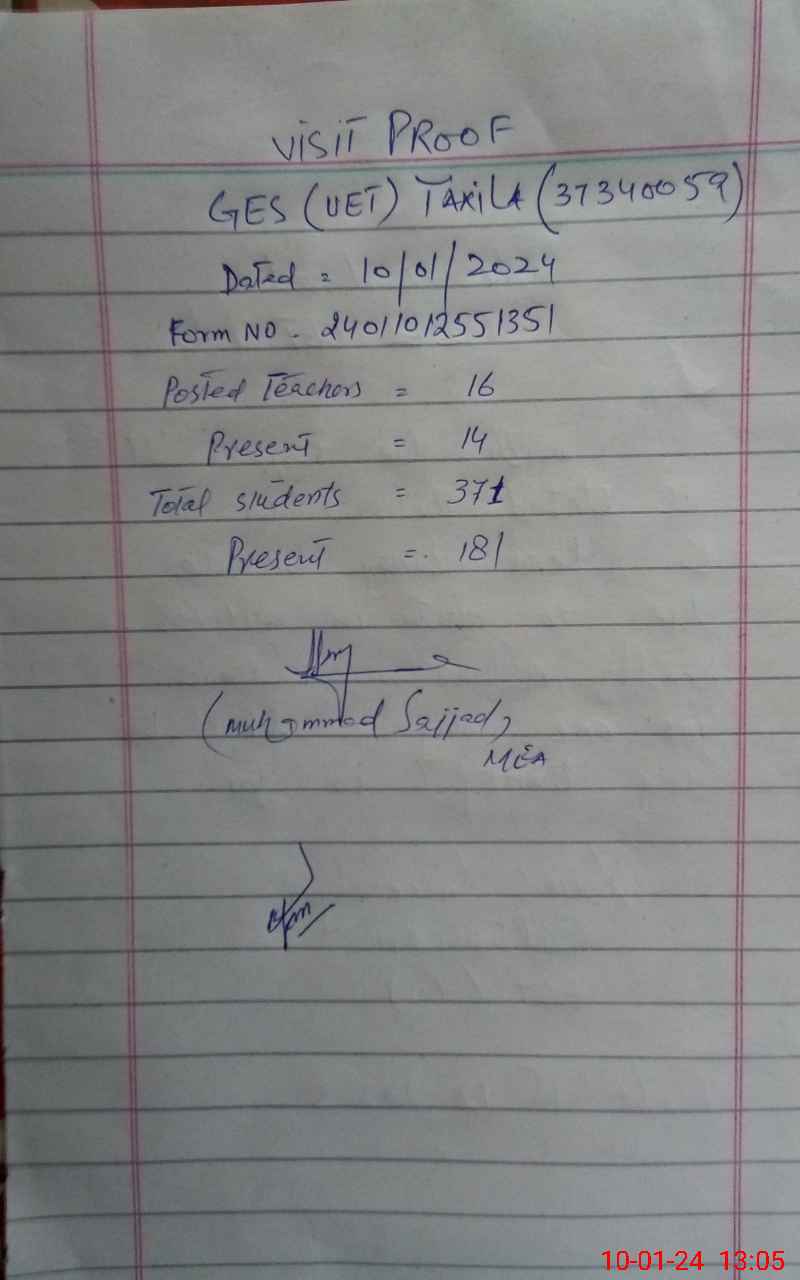 VISIT PROOF
GES (UET) TAXILA (37340059)
Dated = 10/01/2024
Form NO - 24011012551351
Posted Teachers = 16
Present = 14
Total students = 371
Present = 181
(Muhammad Sajjad)
MEA
10-01-24 13:05